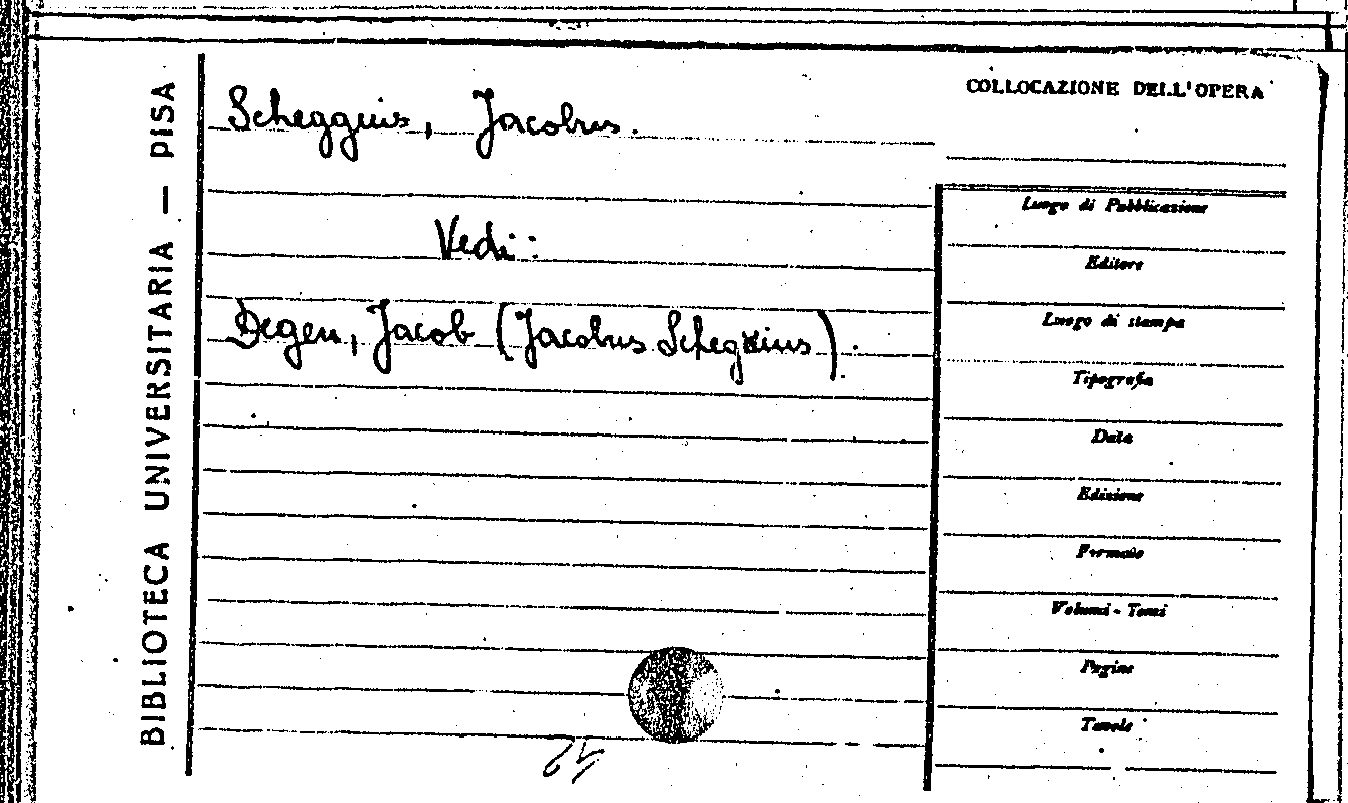 BIBLIOTECA UNIVERSITARIA — PISA
Scheggius, Jacobus.
Vedi:
Degen, Jacob (Jacobus Schegkius).
COLLOCAZIONE DELL'OPERA
Luogo di Pubblicazione
Editore
Luogo di stampa
Tipografia
Data
Edizione
Formato
Volumi - Tomi
Pagine
Tavole